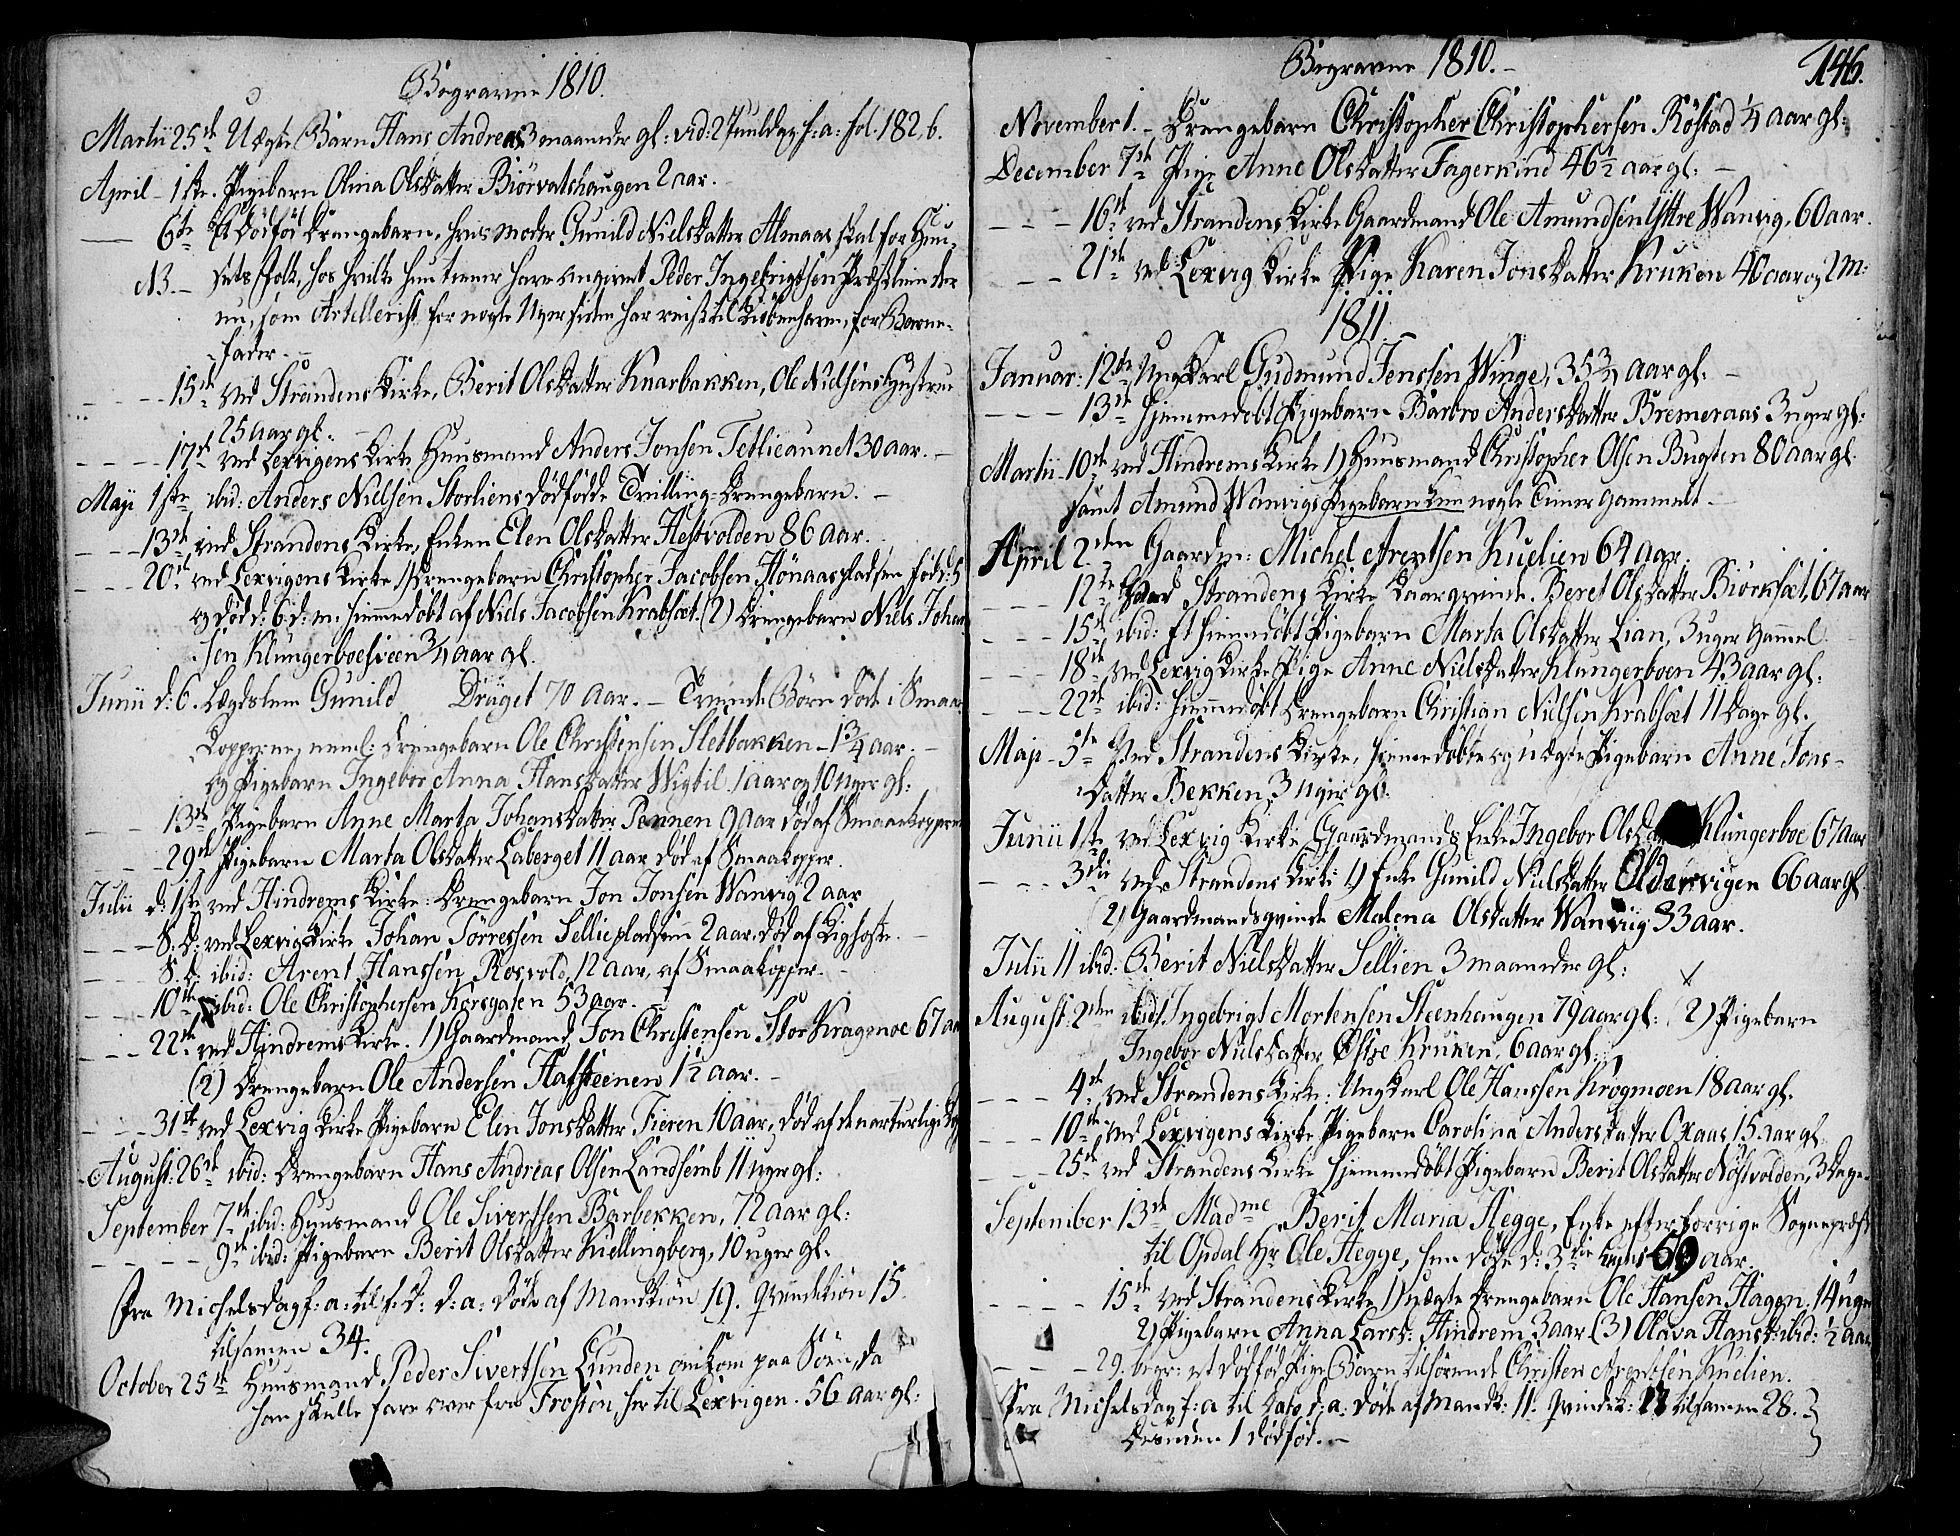 Begravne 1810.
Martii 25de Uægte Barn Hans Andreas 3 maaneder gl: vid: 2 Juuldag f: a: fol. 182, 6.
April - 1ste. Pigebarn Olina Olsdatter Biörvatshaugen 2 aar.
6te Et dödföd Drengebarn, hvis moder Gunild Nielsdatter Almaas skal for Huu-
NB. - sets folk, hos hvilke hun tiener have angivet Peder Ingebrigtsen
nu, som Artellerist for nogle Uger siden har reist til Kiöbenhavn, for Barne-
fader. -
15de ved Strandens Kirke, Berit Olsdatter Knarbakken, Ole Nielsens Hustrue
25 aar gl.
17de ved Lexvigens Kirke Huusmand Anders Jonsen Tetlieaunet 30 aar. -
Maji 1ste ibid: Anders Nielsen Storliens dödfödde Trilling-Drengebarn. -
13de ved Strandens Kirke, Enken Elen Olsdatter Hestvolden 86 aar.
20de ved Lexvigens Kirke 1) Drengebarn Christopher Jacobsen Hönaaspladsen föd d: 5
og död d: 6 d: m: hiemmedöbt af Niels Jacobsen Krabsæt. (2) Drengebarn Niels Johan-
sen Klungerboesveen 3/4 aar gl.
Junii d: 6. Lægdslem Gunild Drüget 70 aar. - Tvende Börn döde i Smaae
Kopperne, neml: Drengebarn Ole Christensen Sletbakken - 1 3/4 aar. -
og Pigebarn Ingebor Anna Hansdatter Wigtil 1 aar og 10 uger gl:
13de Pigebarn Anne Marta Johansdatter Pannen 9 aar död af Smaakopperne
29de Pigebarn Marta Olsdatter Laberget 11 aar död af Smaakopper.
Julii d: 1ste ved Hindrems Kirke: Drengebarn Jon Jonsen Wanvig 2 aar
S: D: ved Lexvig Kirke Johan Törresen Selliepladsen 2 aar, död af Kighoste. -
S: D: ibid: Arent Hanssen Rosvold, 12 aar, af Smaakopper. -
10de ibid: Ole Christophersen Korsgaten 53 aar. -
22de ved Hindrems Kirke. 1) Gaardmand Jon Christensen Stor Kragenoe 67 aar
(2) Drengebarn Ole Andersen Hafsteenen 1 1/2 aar. -
31te ved Lexvig Kirke Pigebarn Elen Jonsdatter Fieren 10 aar, död af de naturlige
August: 26de ibid: Drengebarn Hans Andreas Olsen Landsemb 11 uger gl:
September 7de ibid: Huusmand Ole Siverttsen Barbekken, 72 aar gl:
9de ibid: Pigebarn Berit Olsdatter Kiellingberg, 10 uger gl:
Fra Michelsdag f: a: til s: D: d: a: döde af Mandkiön 19. Qvindekiön 15.
tilsamen 34.
October 25de Huusmand Peder Sivertsen Lunden omkom paa Söen, da
han skulle fare over fra Frosten, her til Lexvigen. 56 aar gl:
Begravne 1810. - 146.
November 1. - Drengebarn Christopher Christophersen Röstad 1/4 aar gl:
December 7de Pige Anne Olsdatter Fagerkind 46 1/2 aar gl: -
16de ved Strandens Kirke Gaardmand Ole Amundsen Yttre Wanvig, 60 aar.
21de ved Lexvig Kirke Pige Karen Jonsdatter Kruken 40 aar og 2 m:
1811
Januar: 12te Ung Karl Gudmund Jenssen Winge, 35 3/4 aar gl: -
13de hjemmedöbt Pigebarn Barbro Andersdatter Bremeraas 3 uger gl:
Martii 10de ved Hindrems Kirke 1) Huusmand Christopher Olsen Bugten 80 aar gl.
samt Amund Wanvigs Pigebarn kun nogle Timer Gammelt -
April 2den Gaardm: Michel Arentsen Kuelien 64 aar.
12te ved Strandens Kirke Kaarqvinde Beret Olsdatter Biörksæt, 67 aar
15de ibid: Et hiemmedöbt Pigebarn Marta Olsdatter Lian, 3 uger Gammel.
18de ved Lexvig Kirke Pige Anne Nielsdatter Klungerboen 43 aar gl:
22de ibid: hiemmedöbt Drengebarn Christian Nielsen Krabsæt 11 Dage gl.
Maji - 5te Ved Strandens Kirke, hiemmedöbte og uægte Pigebarn Anne Jons-
datter Bekken, 3 uger gl.
Junii 1ste ved Lexvig Kirke Gaardmands Enke Ingebor Olsda Klungerboe 67 aar
3die ved Strandens Kirke 1) Enke Gunild Nielsdatter Oldenvigen 66 aar gl.
(2) Gaardmandsqvinde Malena Olsdatter Wanviig 33 aar.
Julii 11 ibid: Berit Nielsdatter Sellien 3 maaneder gl:
August: 2den ibid: Ingebrigt Mortensen Steenhaugen 79 aar gl: (2) Pigebarn
Ingebor Nielsdatter Östre Kruken, 6 aar gl:
4de ved Strandens Kirke: Ung Karl Ole Hanssen Krogmoen 18 aar gl.
10de ved Lexvigens Kirke Pigebarn Carolina Andersdatter Oxaas 15 aar gl:
25de ved Strandens Kirke hjemmedöbt Pigebarn Berit Olsdatter Nöstvolden, 3 Dage.
September 13de Madme Berit Maria Hegge, Enke efter forrige Sogneprest
til Opdal Hr Ole Hegge, hun döde d: 3die 69 aar.
15de ved Strandens Kirke 1) uægte Drengebarn Ole Hansen Hagen. 14 uger
2) Pigebarn Anna Larsd: Hindrem 3 aar (3) Olava Hansd: ibid: 1/2 aar
29. begr: et dödföd Pige Barn tilhörende Christen Arentsen Kuelien.
Fra Michelsdag f: a til Dato d: a: döde af Mandk: 11. Qvindek: 17 tilsamen 28.
Desuden 1 dödföd. -